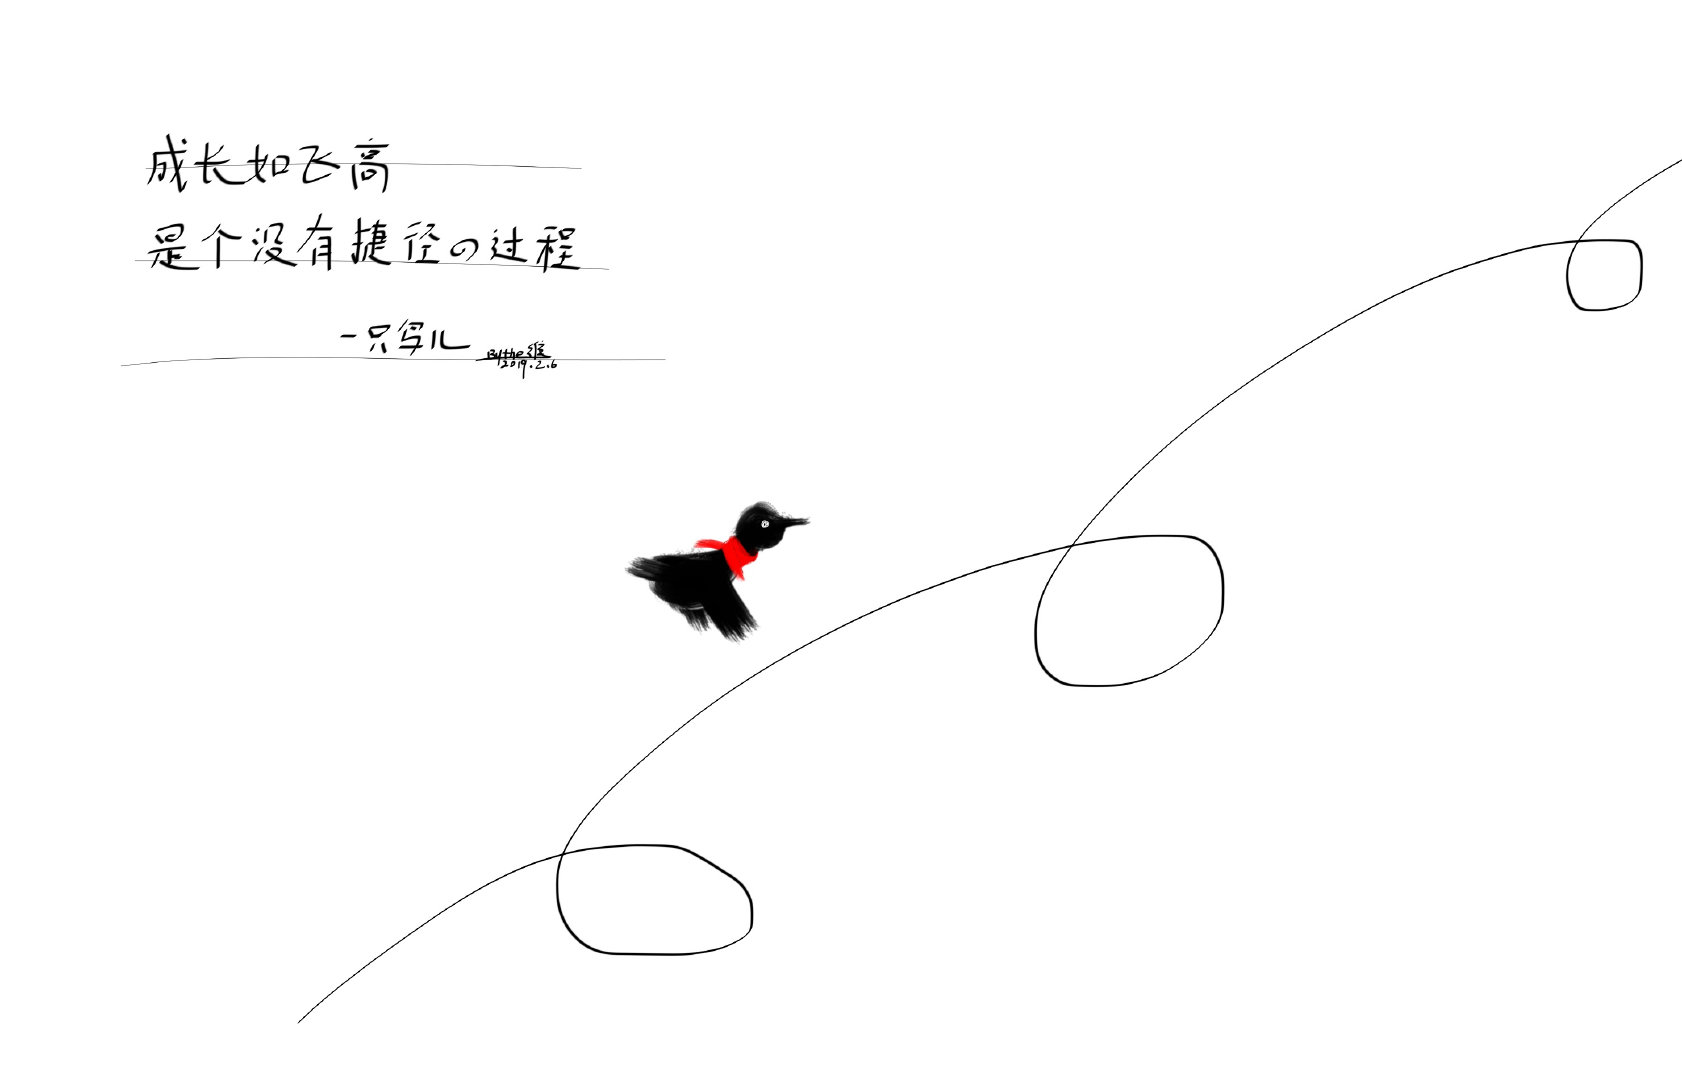 成长如飞高
是个没有捷径の过程
一只写儿
By the 维
2019.2.6